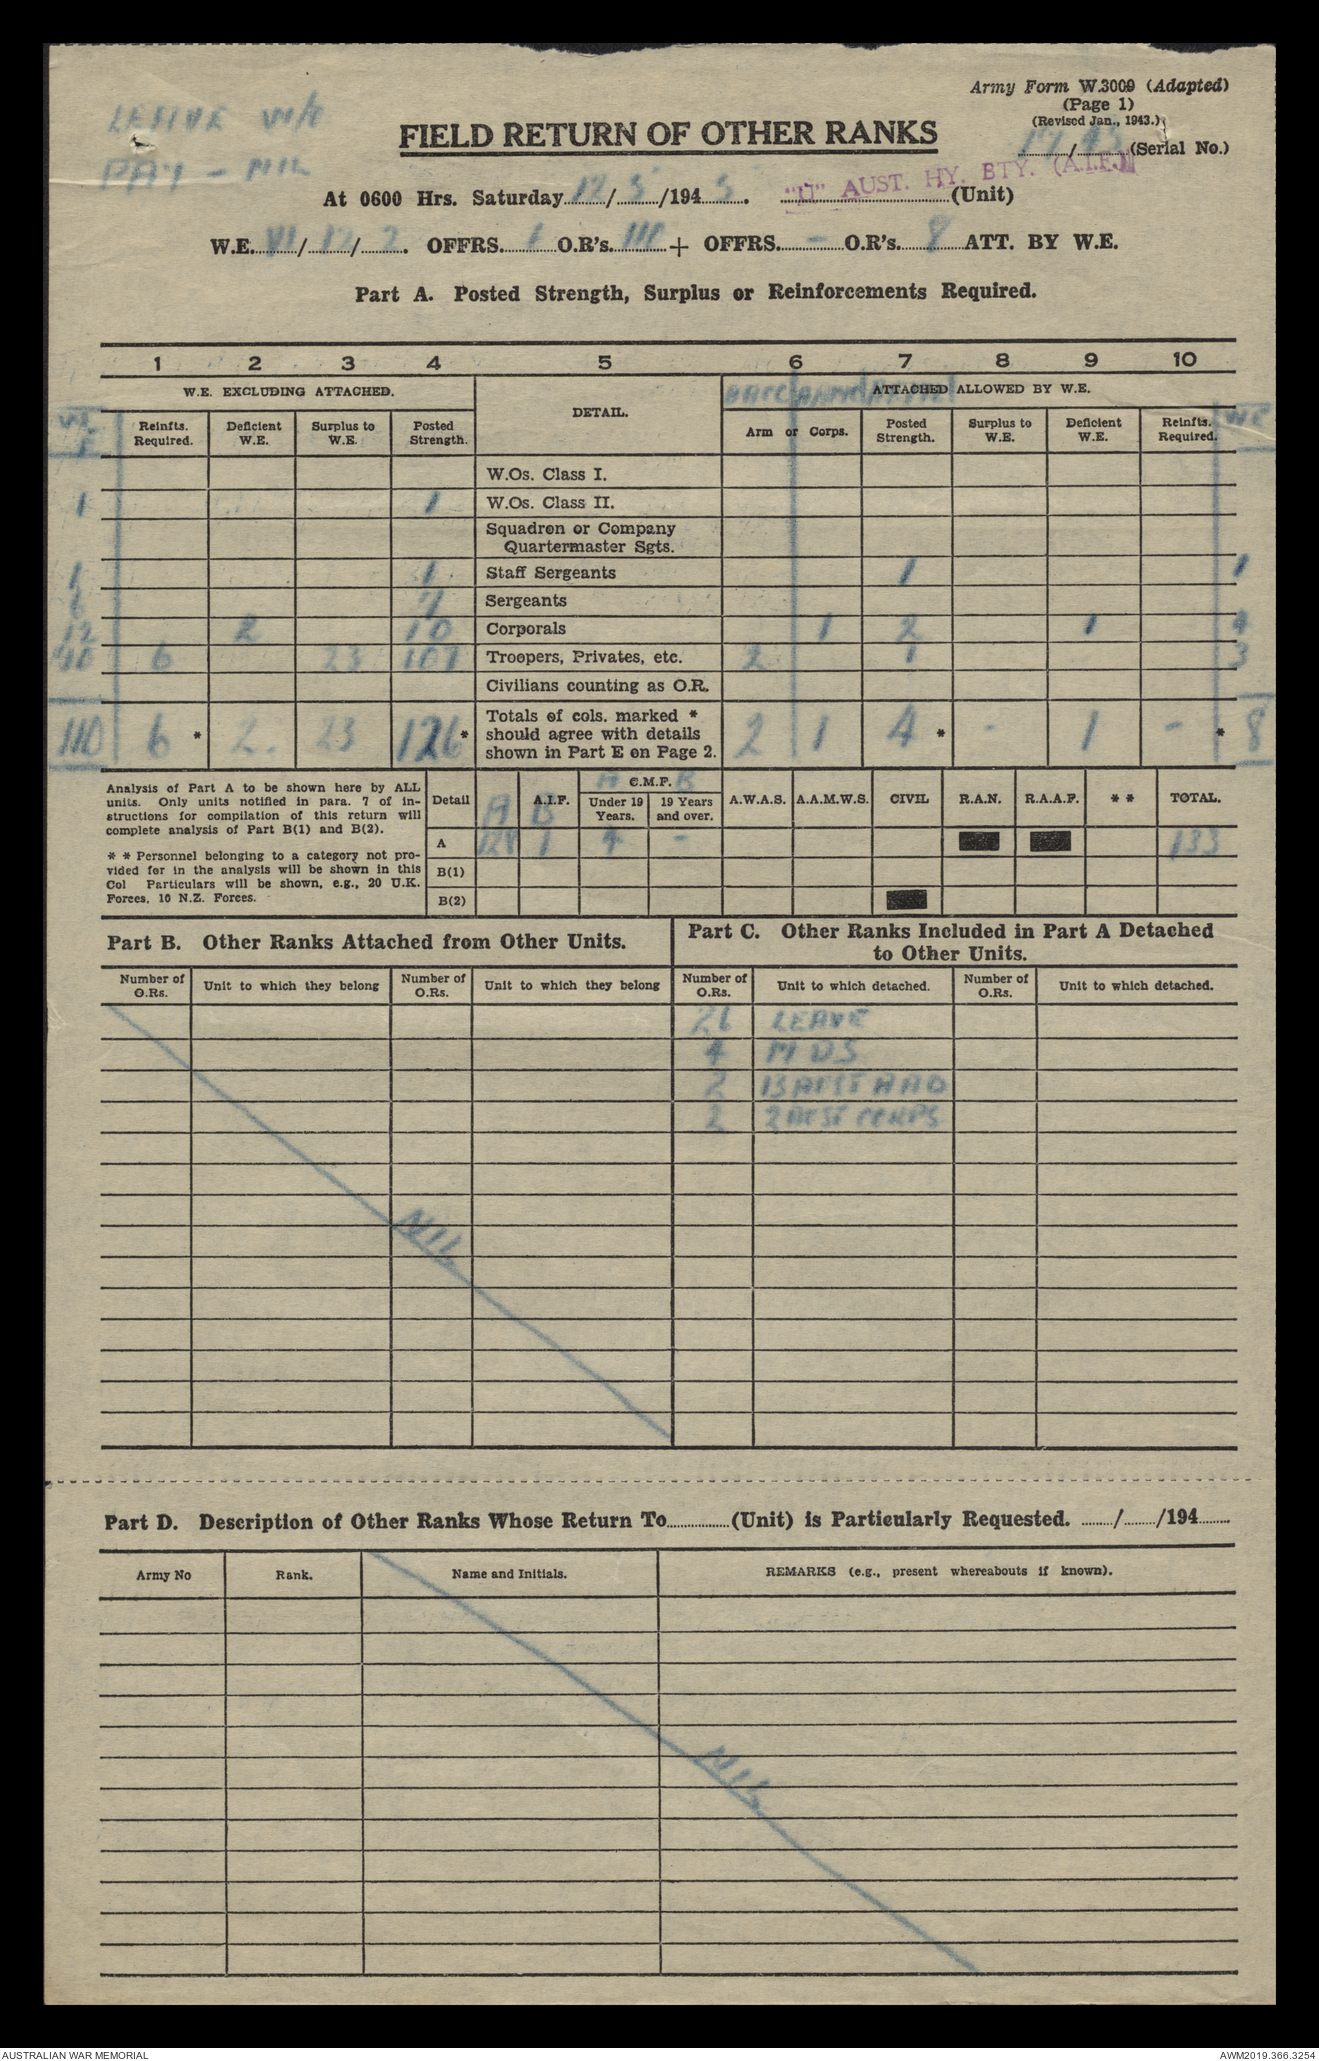 LEAVE W/E
PAY - NIL
Army Form W.3009 (Adapted)
(Page 1)
(Revised Jan., 1943.)
17/43 (Serial No.)
FIELD RETURN OF OTHER RANKS
At 0600 Hrs. Saturday 12/5/1945. "U" AUST. HY. BTY. (A.I.F.) (Unit)
W.E. VI/12/2. OFFRS. 1 O.R's. 110 + OFFRS. - O.R's. 8 ATT. BY W.E.
Part A. Posted Strength, Surplus or Reinforcements Required.
1 2 3 4 5 6 7 8 9 10
W.E. EXCLUDING ATTACHED. DETAIL. ATTACHED ALLOWED BY W.E.
W.E. Reinfts. Required. Deficient W.E. Surplus to W.E. Posted Strength. Arm or Corps. Posted Strength. Surplus to W.E. Deficient W.E. Reinfts. Required. WE
W.Os. Class I.
1 1 W.Os. Class II.
Squadron or Company
Quartermaster Sgts.
1 1 Staff Sergeants 1 1
6 7 Sergeants
12 2 10 Corporals 1 2 1 4
6 23 107 Troopers, Privates, etc. 2 1 3
Civilians counting as O.R.
110 6 * 2. 23 126* Totals of cols. marked * 2 1 4 * - 1 - * 8
should agree with details
shown in Part E on Page 2.
Analysis of Part A to be shown here by ALL
units. Only units notified in para. 7 of in-
structions for compilation of this return will
complete analysis of Part B(1) and B(2).
* * Personnel belonging to a category not pro-
vided for in the analysis will be shown in this
Col Particulars will be shown, e.g., 20 U.K.
Forces, 10 N.Z. Forces.
Detail A A.I.F. B A C.M.F. B Under 19 Years. 19 Years and over. A.W.A.S. A.A.M.W.S. CIVIL R.A.N. R.A.A.F. * * TOTAL.
A 128 1 4 - 133
B(1)
B(2)
Part B. Other Ranks Attached from Other Units.
Part C. Other Ranks Included in Part A Detached
to Other Units.
Number of O.Rs. Unit to which they belong Number of O.Rs. Unit to which they belong Number of O.Rs. Unit to which detached. Number of O.Rs. Unit to which detached.
26 LEAVE
4 M D S
2 13 AUST A A O
2 2 AUST CORPS
NIL
Part D. Description of Other Ranks Whose Return To (Unit) is Particularly Requested. / /194
Army No Rank. Name and Initials. REMARKS (e.g., present whereabouts if known).
NIL
AUSTRALIAN WAR MEMORIAL AWM2019.366.3254